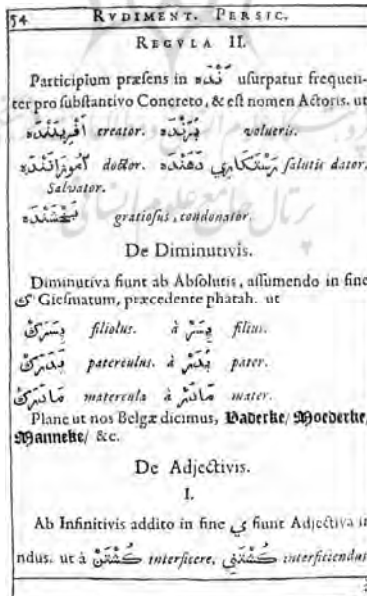 54 RVDIMENT. PERSIC.
REGVLA II.
Participium præſens in نْدَه uſurpatur frequen-
ter pro ſubſtantivo Concreto, & eſt nomen Actoris. ut
آفْرِينَنْدَه creator. پَرَنْدَه volucris.
آمُوزَانَنْدَه doctor. رَسْتَكَارِي دَهَنْدَه ſalutis dator,
Salvator.
بَخْشَنْدَه gratioſus, condonator.
De Diminutivis.
Diminutiva fiunt ab Abſolutis, aſſumendo in fine
ك Gieſmatum, præcedente phatah. ut
پِسَرَكْ filiolus. à پِسَرْ filius.
پِدَرَكْ paterculus. à پِدَرْ pater.
مَادَرَكْ matercula à مَادَرْ mater.
Plane ut nos Belgæ dicimus, Vaderke/ Moederke/
Manneke/ &c.
De Adjectivis.
I.
Ab Infinitivis addito in fine ي fiunt Adjectiva in
ndus. ut à كُشْتَنْ interficere, كُشْتَنِي interficiendus